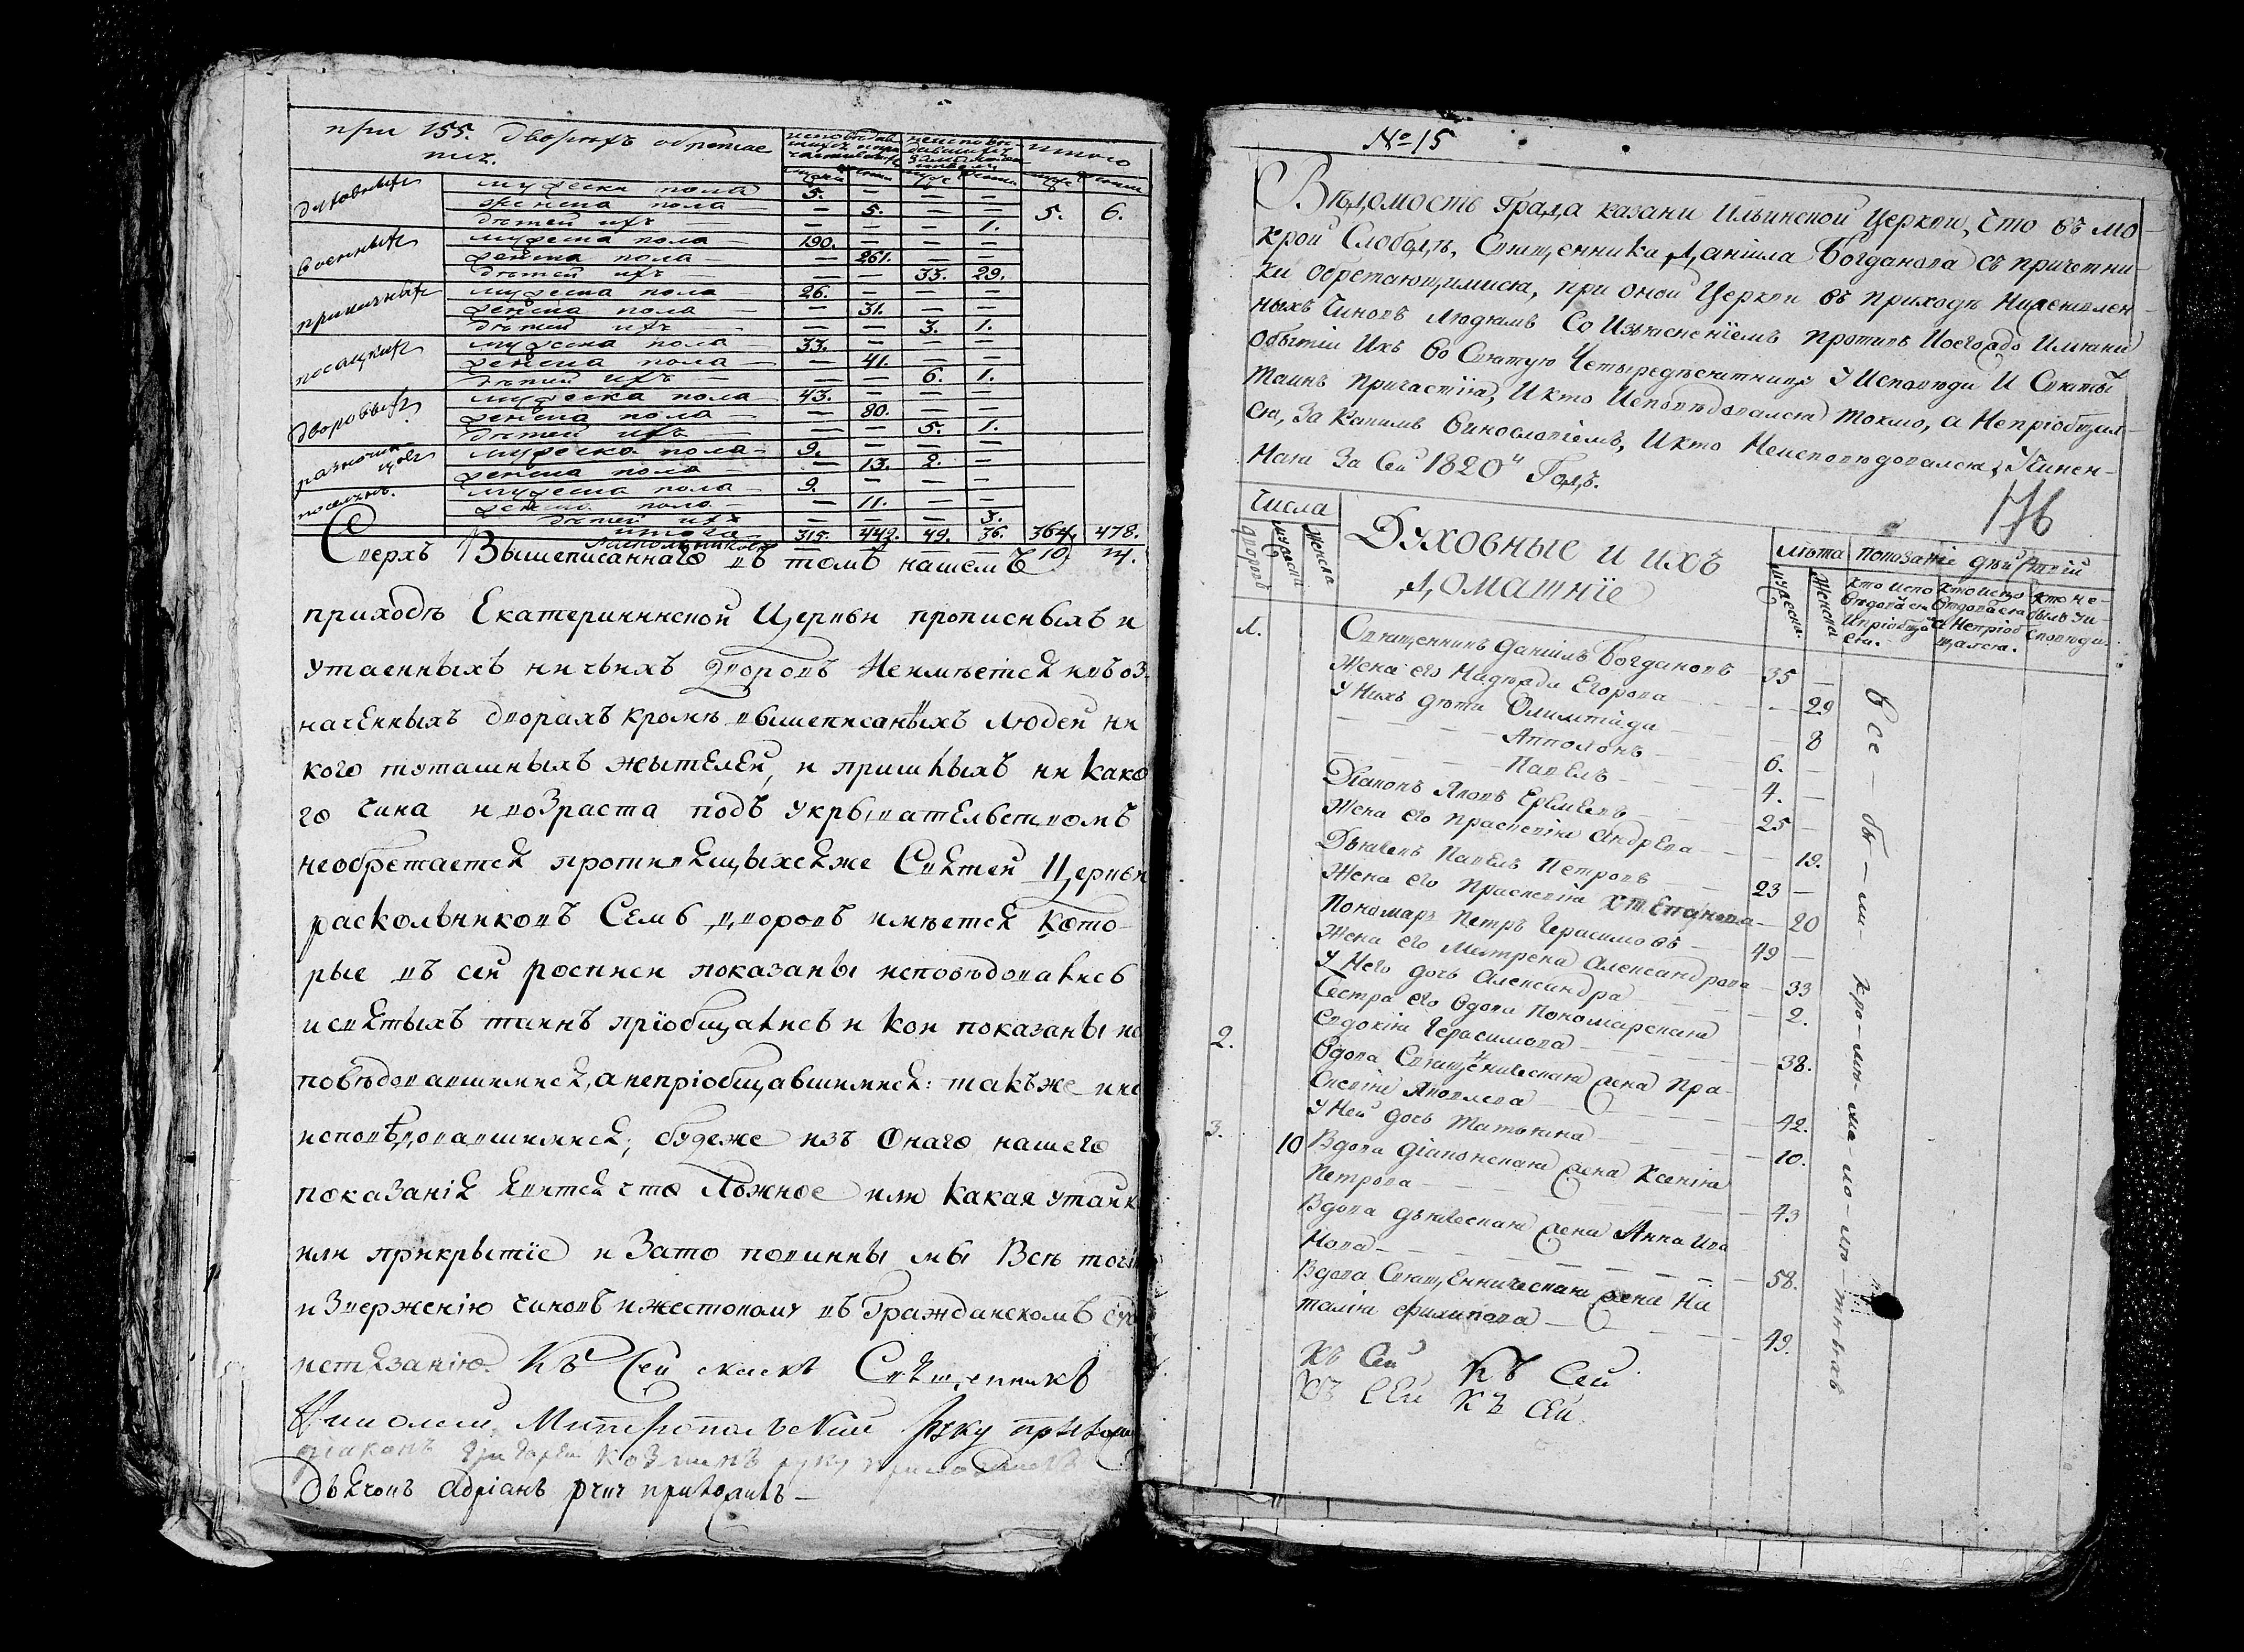 при 155. дворахъ обретае
тсѧ.
исповѣдав
шихся и при
частившихся
неисповѣ
давшихъ
итого
муска женска муж женска муж женска
духовныхъ
мужеска пола 5. — — —
женска пола — 5. — — 5. 6.
дѣтей ихъ — — — 1.
военныхъ
мужеска пола 190. — — —
женска пола — 261. — —
дѣтей ихъ — — 33. 29.
приказныхъ
мужеска пола 26. — — —
женска пола — 31. — —
дѣтей ихъ — — 3. 1.
посацкихъ
мужеска пола 33. — — —
женска пола — 41. — —
дѣтей ихъ — — 6. 1.
дворовыхъ
мужеска пола 43. — — —
женска пола — 80. — —
дѣтей ихъ — — 5. 1.
разночин
цовъ
мужеска пола 9. — — —
женска пола — 13. 2. —
поселян.
мужеска пола 9. — — —
женска пола — 11. — —
дѣтей ихъ — — — 3.
итого 315. 442. 49. 36. 364. 478.
раскольниковъ — — — — 10. 14.
Сверхъ Вышеписаннаго въ томъ нашемъ
приходѣ Екатерининской Церкви прописныхъ и
утаенныхъ ничьихъ дворовъ Неимѣется и въ оз
наченныхъ дворахъ кромѣ вышеписанныхъ людей ни
кого туташныхъ жытелей, и пришлыхъ ни како
го чина и возраста подъ укрывательствомъ
необретается противящыхсяже Святей Церькви
раскольниковъ Семь дворовъ имѣется кото
рые въ сей росписи показаны исповѣдовались
и святыхъ таинъ пріобщались и кои показаны ис
повѣдовавшимися, а непріобщавшимися: такъже и не
исповѣдовавшимися; будеже изъ Онаго нашего
показанія явится что Ложное или какая утайк
или прикрытіе и Зато повинны мы Всѣ точ
изверженію чиновъ и жестокому въ Гражданскомъ суд
истязанію. Къ Сей скаскѣ Священникъ
Николай Митропольский Руку прилож
діаконъ Григорей Козминъ руку приложилъ
Дьячокъ Адріанъ руку приложилъ —
№ 15
Вѣдомость Града казани Ильинской Церкви, что въ мо
крой Слободѣ, Священника Даніила Богданова съ причетни
ки обретающимися, при оной Церкви въ приходѣ Нижеявлен
ныхъ Чиновъ людямъ Со Изъясненіемъ противъ Коегождо Имяни
Обытіи Ихъ Во Святую Четыредесятницу У Исповѣди И Святыхъ
Таинъ Причастія, И кто Исповѣдовался токмо, а Непріобщал
ся, За Какимъ Винословіемъ, И кто Неисповѣдовался,
Маія За Сей 1820й Годъ.
176
Числа
дворовъ
мужеска
женска
Духовные и ихъ
Домашніе
Лѣта
мужеска.
Женска
показаніе дѣйствій
кто испо
вѣдовася
И пріобщи
ся.
кто испо
вѣдовася
а Непріоб
щался.
кто не
былъ у и
сповѣди.
1.
Священникъ Даніилъ Богдановъ 35 —
Жена его Надежда Егорова — 29
У Нихъ дѣти Олимпіада — 8
Апполонъ 6. —
Павелъ 4. —
Діаконъ Яковъ Еремѣевъ 25 —
Жена его Праскевія Андрева — 19.
Дьячекъ Павелъ Петровъ 23 —
Жена его Праскевія Степанова — 20
Пономарь Петръ Герасимовъ 49 —
Жена его Матрена Александрова — 33
У Него дочь Александра — 2.
Сестра его Вдова Пономарская
Евдокія Герасимова — 38.
2.
Вдова Священническая жена Пра
скевія Яковлева — 42.
У Ней дочь Татьяна — 10.
3. 10
Вдова діаконская жена Ксенія
Петрова — 43
Вдова дьяческая жена Анна Ива
Нова — 58.
Вдова Священническая жена На
талія Филипова — 49.
Все — бы — ли —
Къ Сей Къ Сей
Къ Сей Къ Сей.